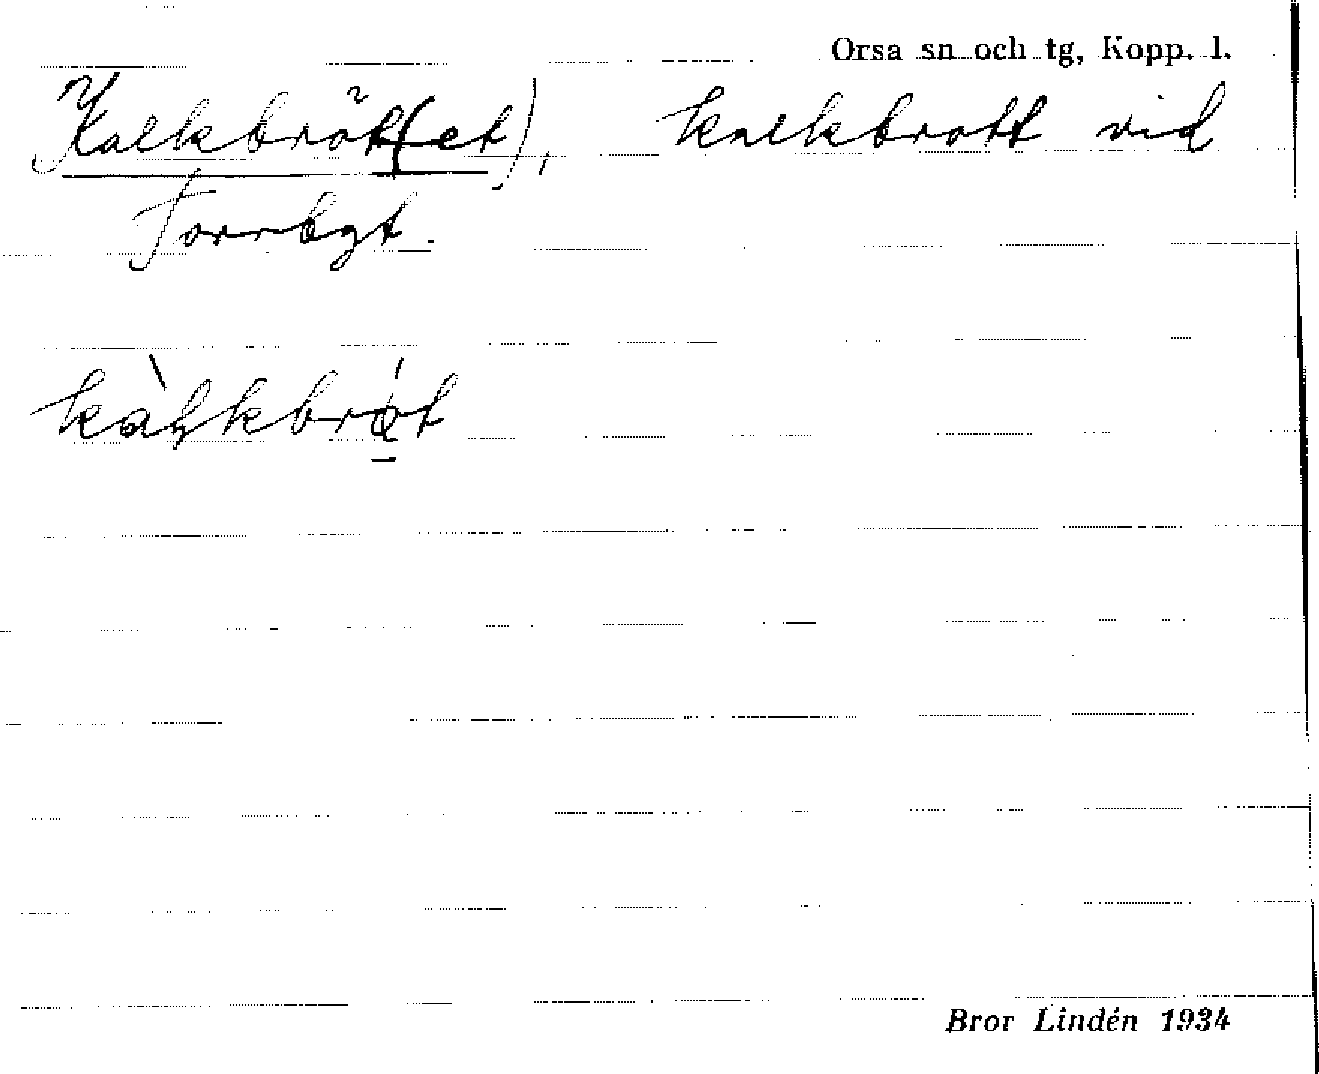 Orsa sn och tg, Kopp. l.
Kalkbröt(et), kalkbrott vid
Torrbgt.
kàļkbrót
Bror Lindén 1934